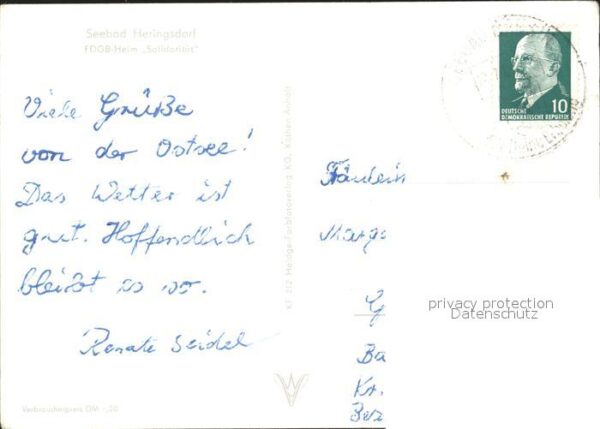 Seebad Heringsdorf
FDGB-Heim „Solidarität"
Viele Grüße
von der Ostsee!
Das Wetter ist
gut. Hoffendlich
bleibt es so.
Renate Seidel
Verbraucherpreis DM -,20
KF 212 Halage-Farbfotoverlag KG, Köthen Anhalt
10
DEUTSCHE
DEMOKRATISCHE REPUBLIK
Fräulein
Marga
Ba
Kr.
Bez
privacy protection
Datenschutz